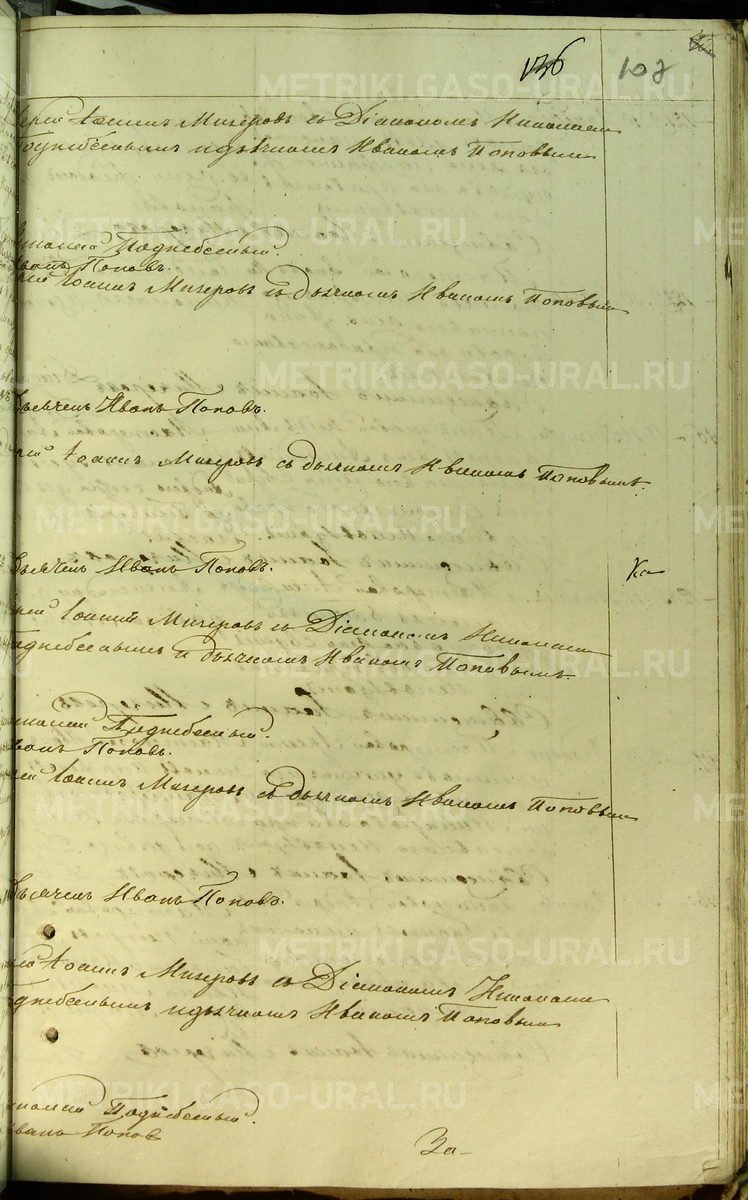 136 107
METRIKI.GASO-URAL.RU
ерей Іоаннъ Мизеровъ съ Діакономъ Николаем
Поднебеснымъ и дьячкомъ Иваномъ Поповым
Николай Поднебесный.
Иванъ Поповъ.
рей Іоаннъ Мизеровъ съ дьячкомъ Иваномъ Поповым
Дьячекъ Иванъ Поповъ.
рей Іоаннъ Мизеровъ съ дьячкомъ Иваномъ Поповымъ
Дьячекъ Иванъ Поповъ.
Ка
рей Іоаннъ Мизеровъ съ Діакономъ Николаем
однебеснымъ и дьячкомъ Иваномъ Поповымъ
иколай Поднебесный.
ванъ Поповъ.
рей Іоаннъ Мизеровъ съ дьячкомъ Иваномъ Поповым
Дьячекъ Иванъ Поповъ.
рей Іоаннъ Мизеровъ съ Діакономъ Николаем
однебеснымъ и дьячкомъ Иваномъ Поповым
иколай Поднебесный.
Иванъ Попов
За-